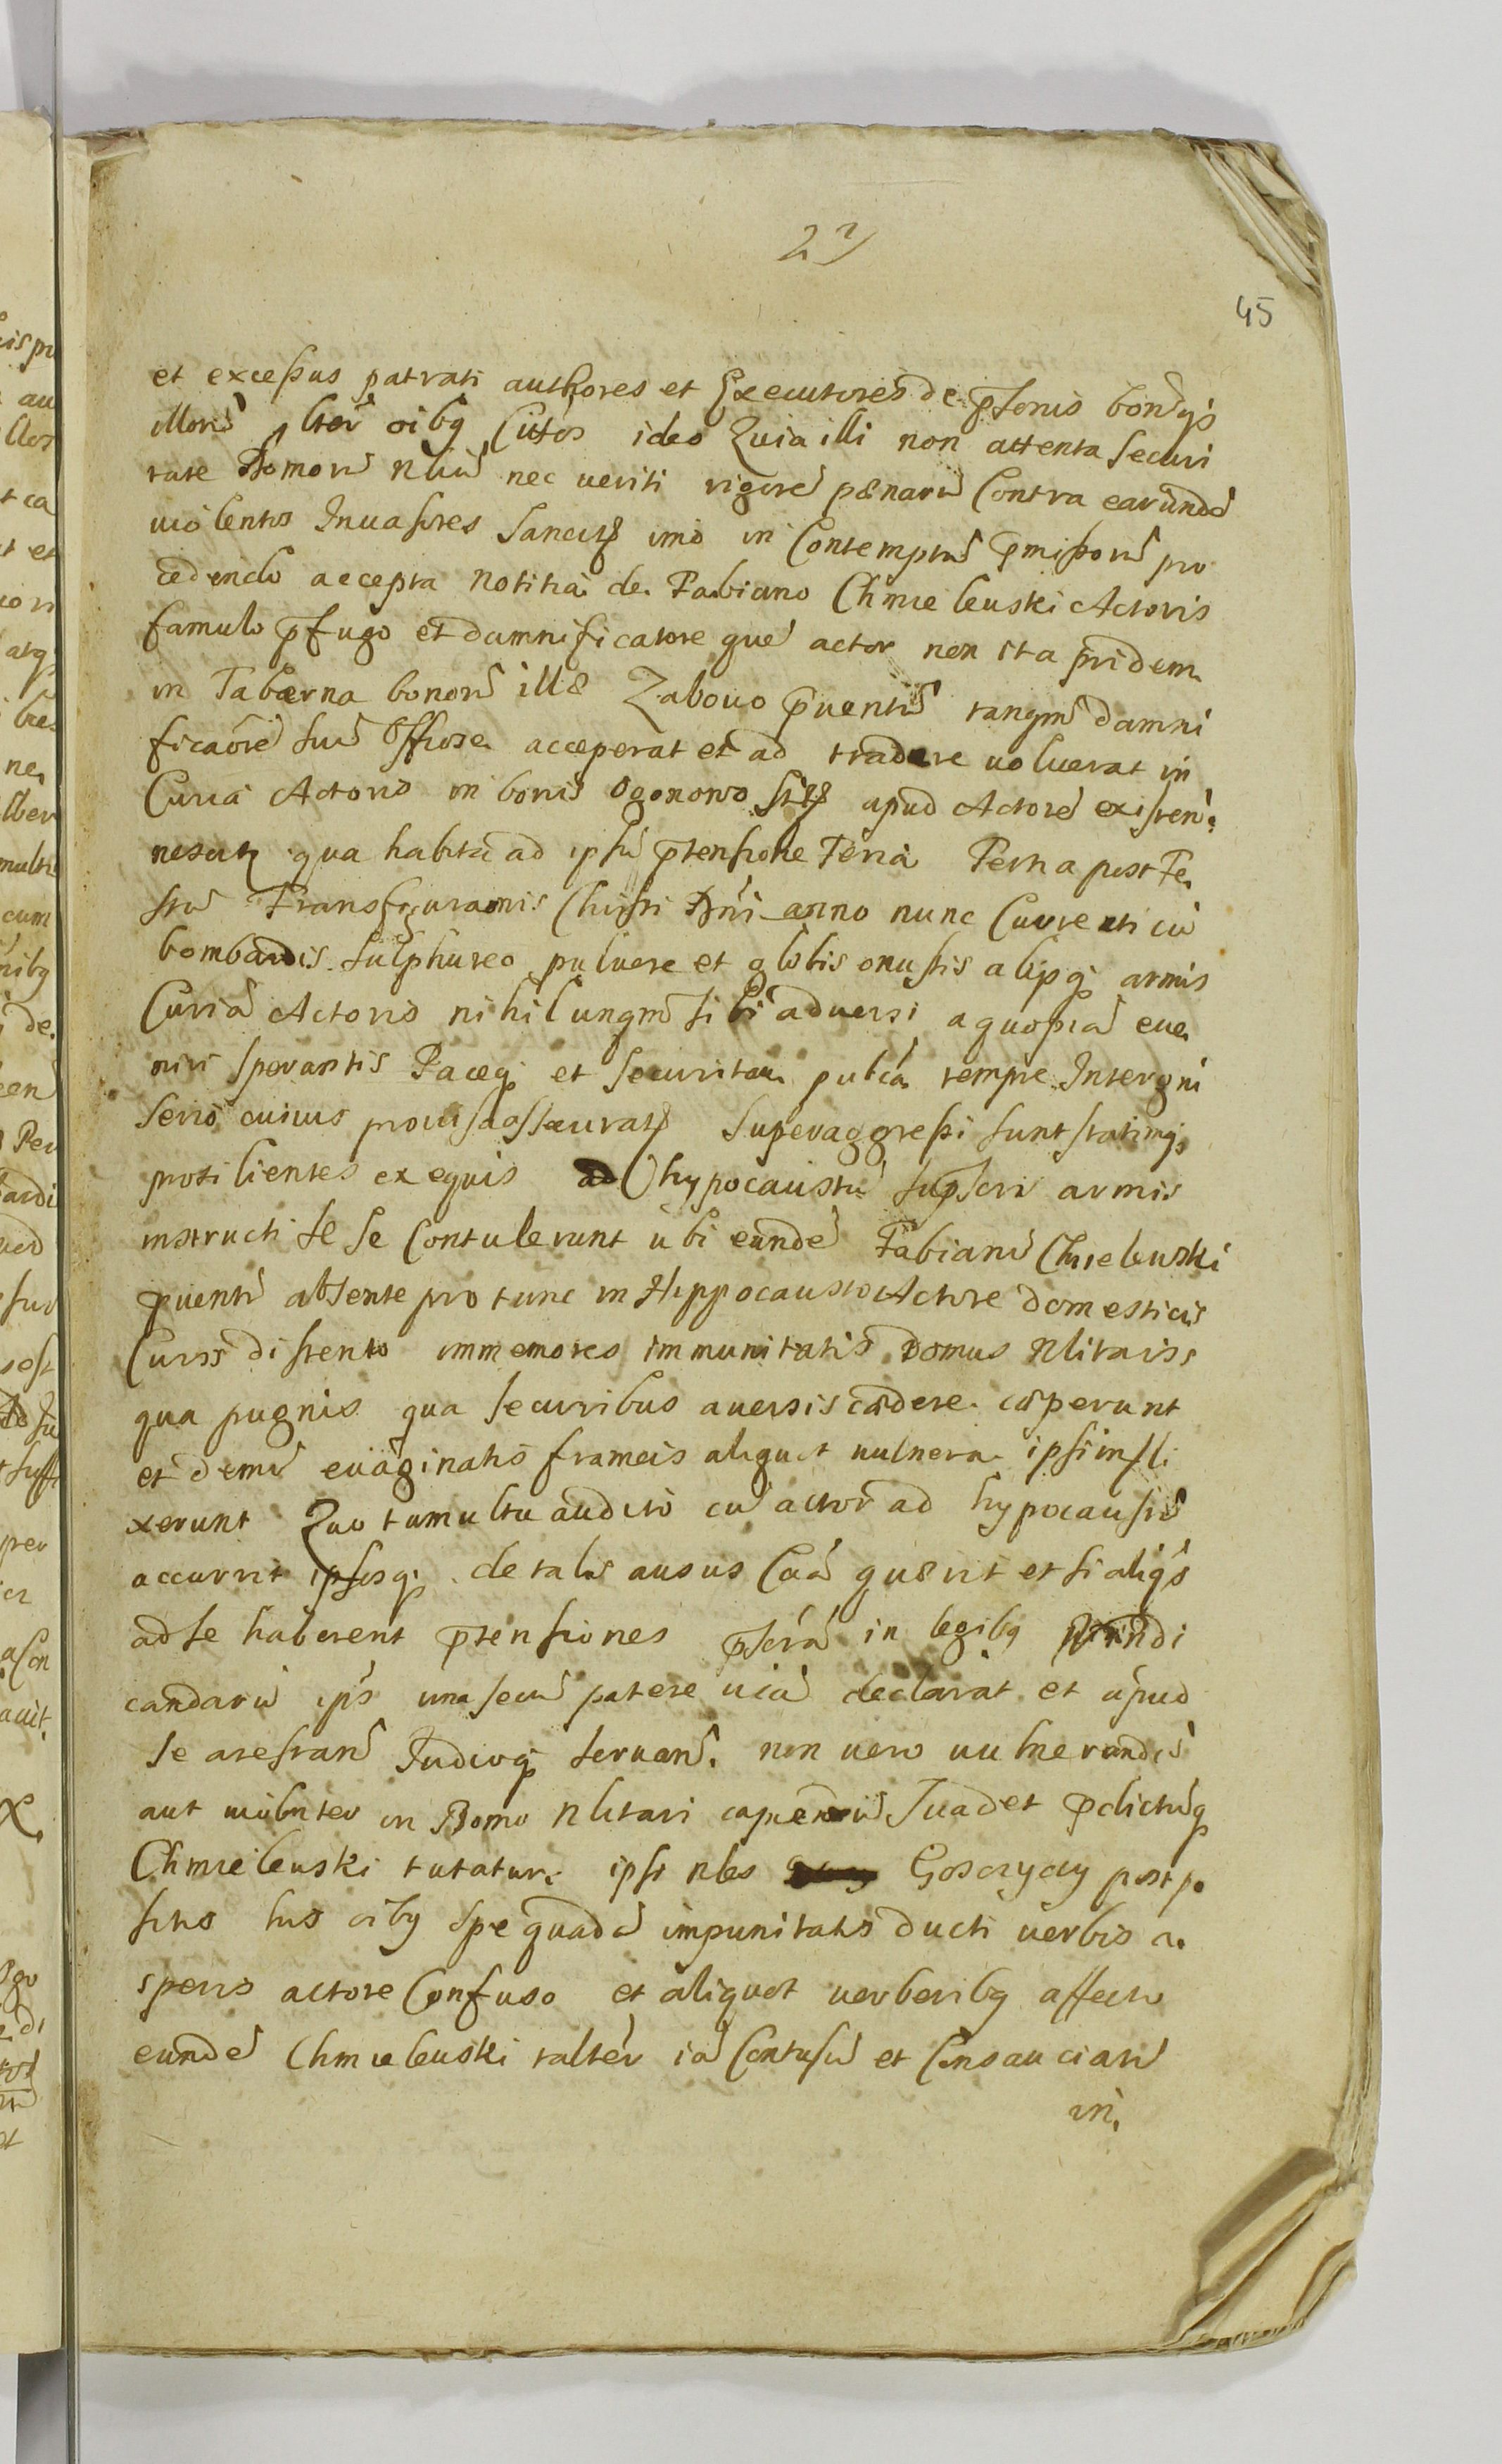 27
45
et excessus patrati authores et Executores de pſonis bonisqȝ
illorũ lter oibq Citãs ideo Quia illi non attenta securi
tate Domorũ nliũ nec veriti rigorẽ pænarũ Contra earundẽ
violentos Invasores Sancitȩ imo in Contemptũ p̃missorũ pro
cedendo accepta notitia de Fabiano Chmielewski Actoris
famulo p̃fugo et damnificatore quẽ actor non ita pridem
in Taberna bonorũ illȩ Zabovo p̃ventũ tanqm̃ damni
ficaõrẽ suũ Offiose acceperat et ad tradere voluerat in
Curia Actoris in bonis Ogonowo apud Actorẽ existen.
nescitr qua habita ad ipsũ p̃tensione Feria Festa post Fe
stũ Transfiguraõnis Christi Dñi anno nunc Currenti cũ
bombardis sulphureo pulvere et globis onustis alijsqȝ armis
Curiã Actoris nihil unqm̃ sibi adversi a quopiã eve
niri sperantis Paceqȝ et securitate publca tempre Interreg̃ni
serio cuius provisa assecuratȩ Superaggressi sunt statimqȝ
prosilientes ex equis ad hypocaustũ supscri armis
instructi se se Contulerunt ubi eundẽ Fabianũ Chmielewski
p̃ventũ absente pro tunc in Hyppocausto Actore domesticis
Curis distento immemores immunitatis Domus Nlitaris
qua pugnis qua securibus aversis cædere cæperunt
et demũ evaginatis frameis aliquot vulnera ipsi infli
xerunt Quo tumultu audito cũ actor ad hypocaustũ
accurrit ipsisqȝ de talũ ausus Cãa quȩrit et si aliqs̃
ad se haberent p̃tensiones pscrã in legibq vindi
candarũ ip̃s una secũ patere viã declarat et apud
se arestanð Judiciqȝ servanð. non vero vulnerandũ
aut violnter in Domo Nlitari capiendũ Suadet p̃dictũqȝ
Chmielewski tutatur. ipsi nles Goscyccy post po
sitis his oibq spe quadã impunitatis ducti verbis a
speris actore Confuso et aliquot verberibq affecto
eundẽ Chmielewski talter iã Contusũ et Consauciatũ
in